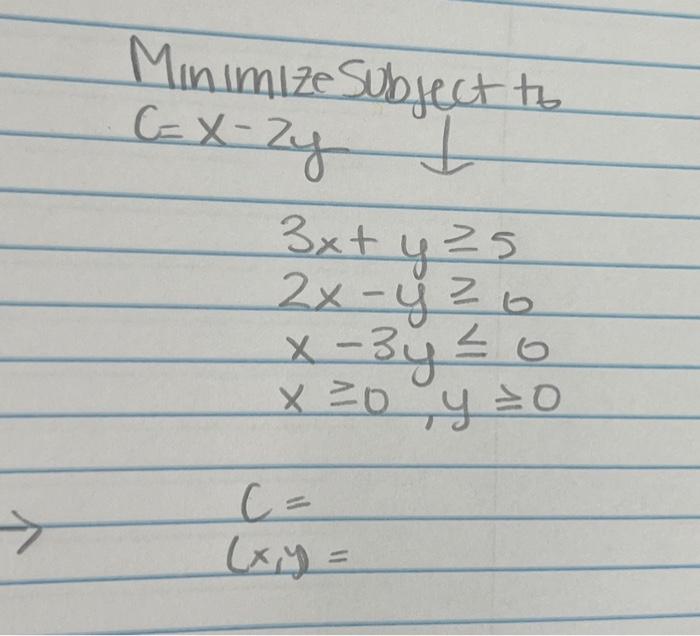 Minimize Subject to
C = x - 2y ↓
3x + y ≥ 5
2x - y ≥ 0
x - 3y ≤ 0
x ≥ 0, y ≥ 0
→ C =
(x,y) =